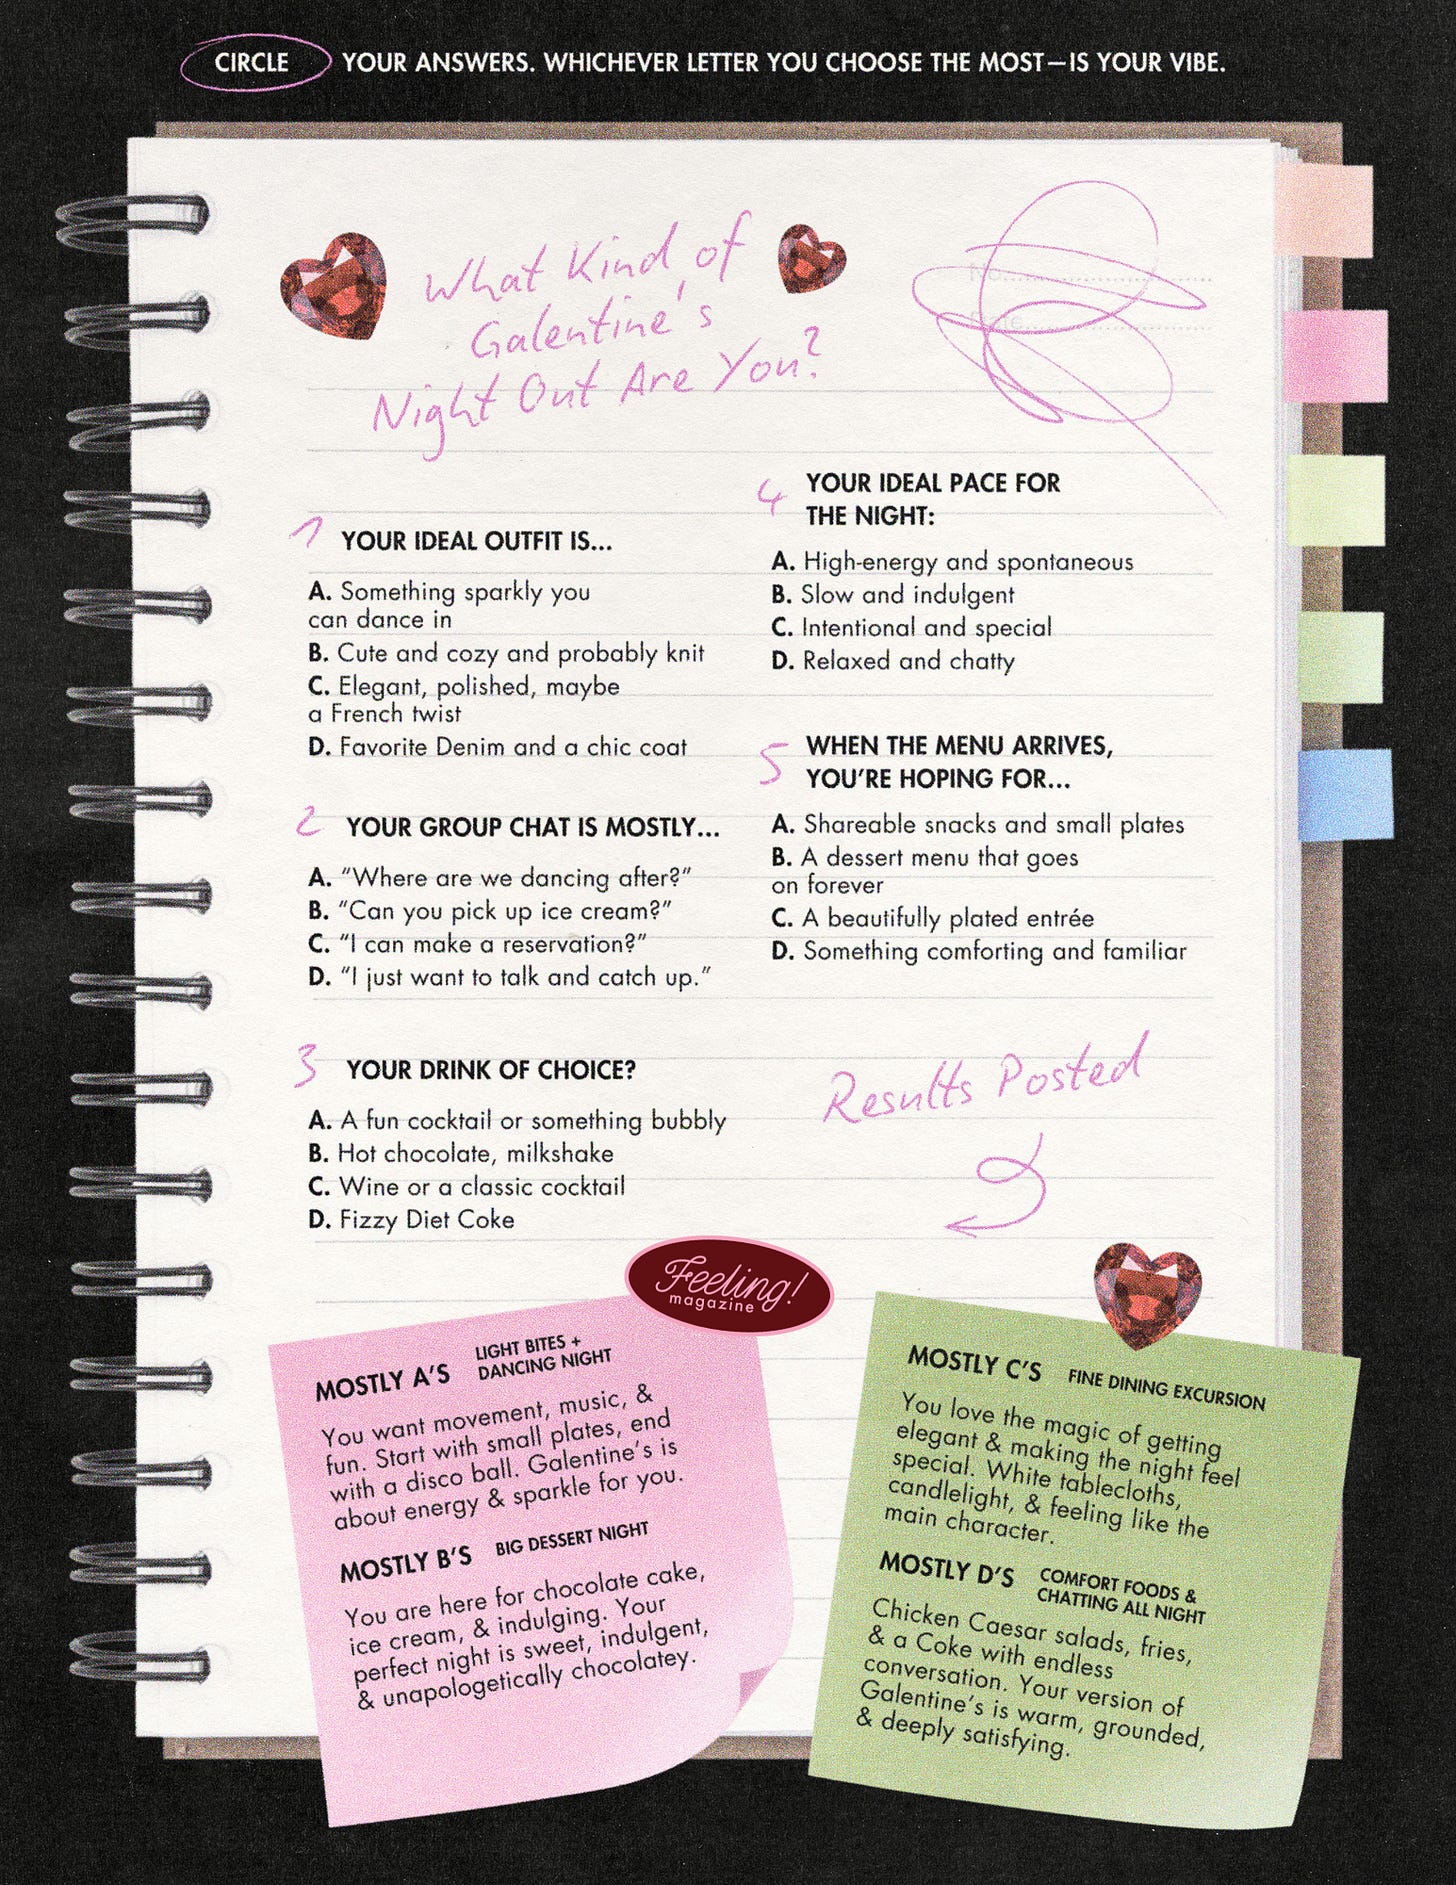 CIRCLE YOUR ANSWERS. WHICHEVER LETTER YOU CHOOSE THE MOST—IS YOUR VIBE.
What Kind of
Galentine's
Night Out Are You?
1 YOUR IDEAL OUTFIT IS...
A. Something sparkly you
can dance in
B. Cute and cozy and probably knit
C. Elegant, polished, maybe
a French twist
D. Favorite Denim and a chic coat
2 YOUR GROUP CHAT IS MOSTLY...
A. "Where are we dancing after?"
B. "Can you pick up ice cream?"
C. "I can make a reservation?"
D. "I just want to talk and catch up."
3 YOUR DRINK OF CHOICE?
A. A fun cocktail or something bubbly
B. Hot chocolate, milkshake
C. Wine or a classic cocktail
D. Fizzy Diet Coke
4 YOUR IDEAL PACE FOR
THE NIGHT:
A. High-energy and spontaneous
B. Slow and indulgent
C. Intentional and special
D. Relaxed and chatty
5 WHEN THE MENU ARRIVES,
YOU'RE HOPING FOR...
A. Shareable snacks and small plates
B. A dessert menu that goes
on forever
C. A beautifully plated entrée
D. Something comforting and familiar
Results Posted
Feeling!
magazine
MOSTLY A'S
LIGHT BITES +
DANCING NIGHT
You want movement, music, &
fun. Start with small plates, end
with a disco ball. Galentine's is
about energy & sparkle for you.
MOSTLY B'S BIG DESSERT NIGHT
You are here for chocolate cake,
ice cream, & indulging. Your
perfect night is sweet, indulgent,
& unapologetically chocolatey.
MOSTLY C'S FINE DINING EXCURSION
You love the magic of getting
elegant & making the night feel
special. White tablecloths,
candlelight, & feeling like the
main character.
MOSTLY D'S
COMFORT FOODS &
CHATTING ALL NIGHT
Chicken Caesar salads, fries,
& a Coke with endless
conversation. Your version of
Galentine's is warm, grounded,
& deeply satisfying.